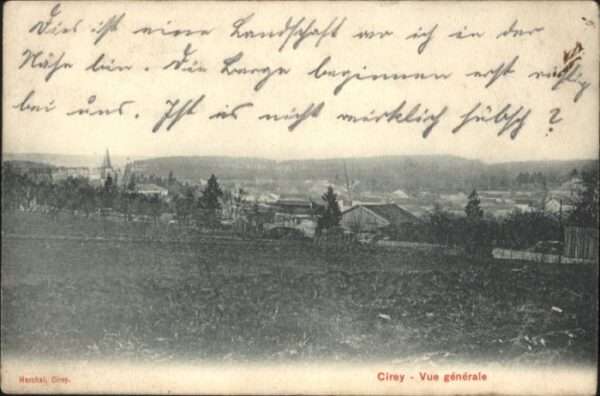 Dies ist eine Landschaft wo ich in der
Nähe bin. Die Berge beginnen erst richtig
bei uns. Ist es nicht wirklich hübsch?
Marchal, Cirey.
Cirey - Vue générale